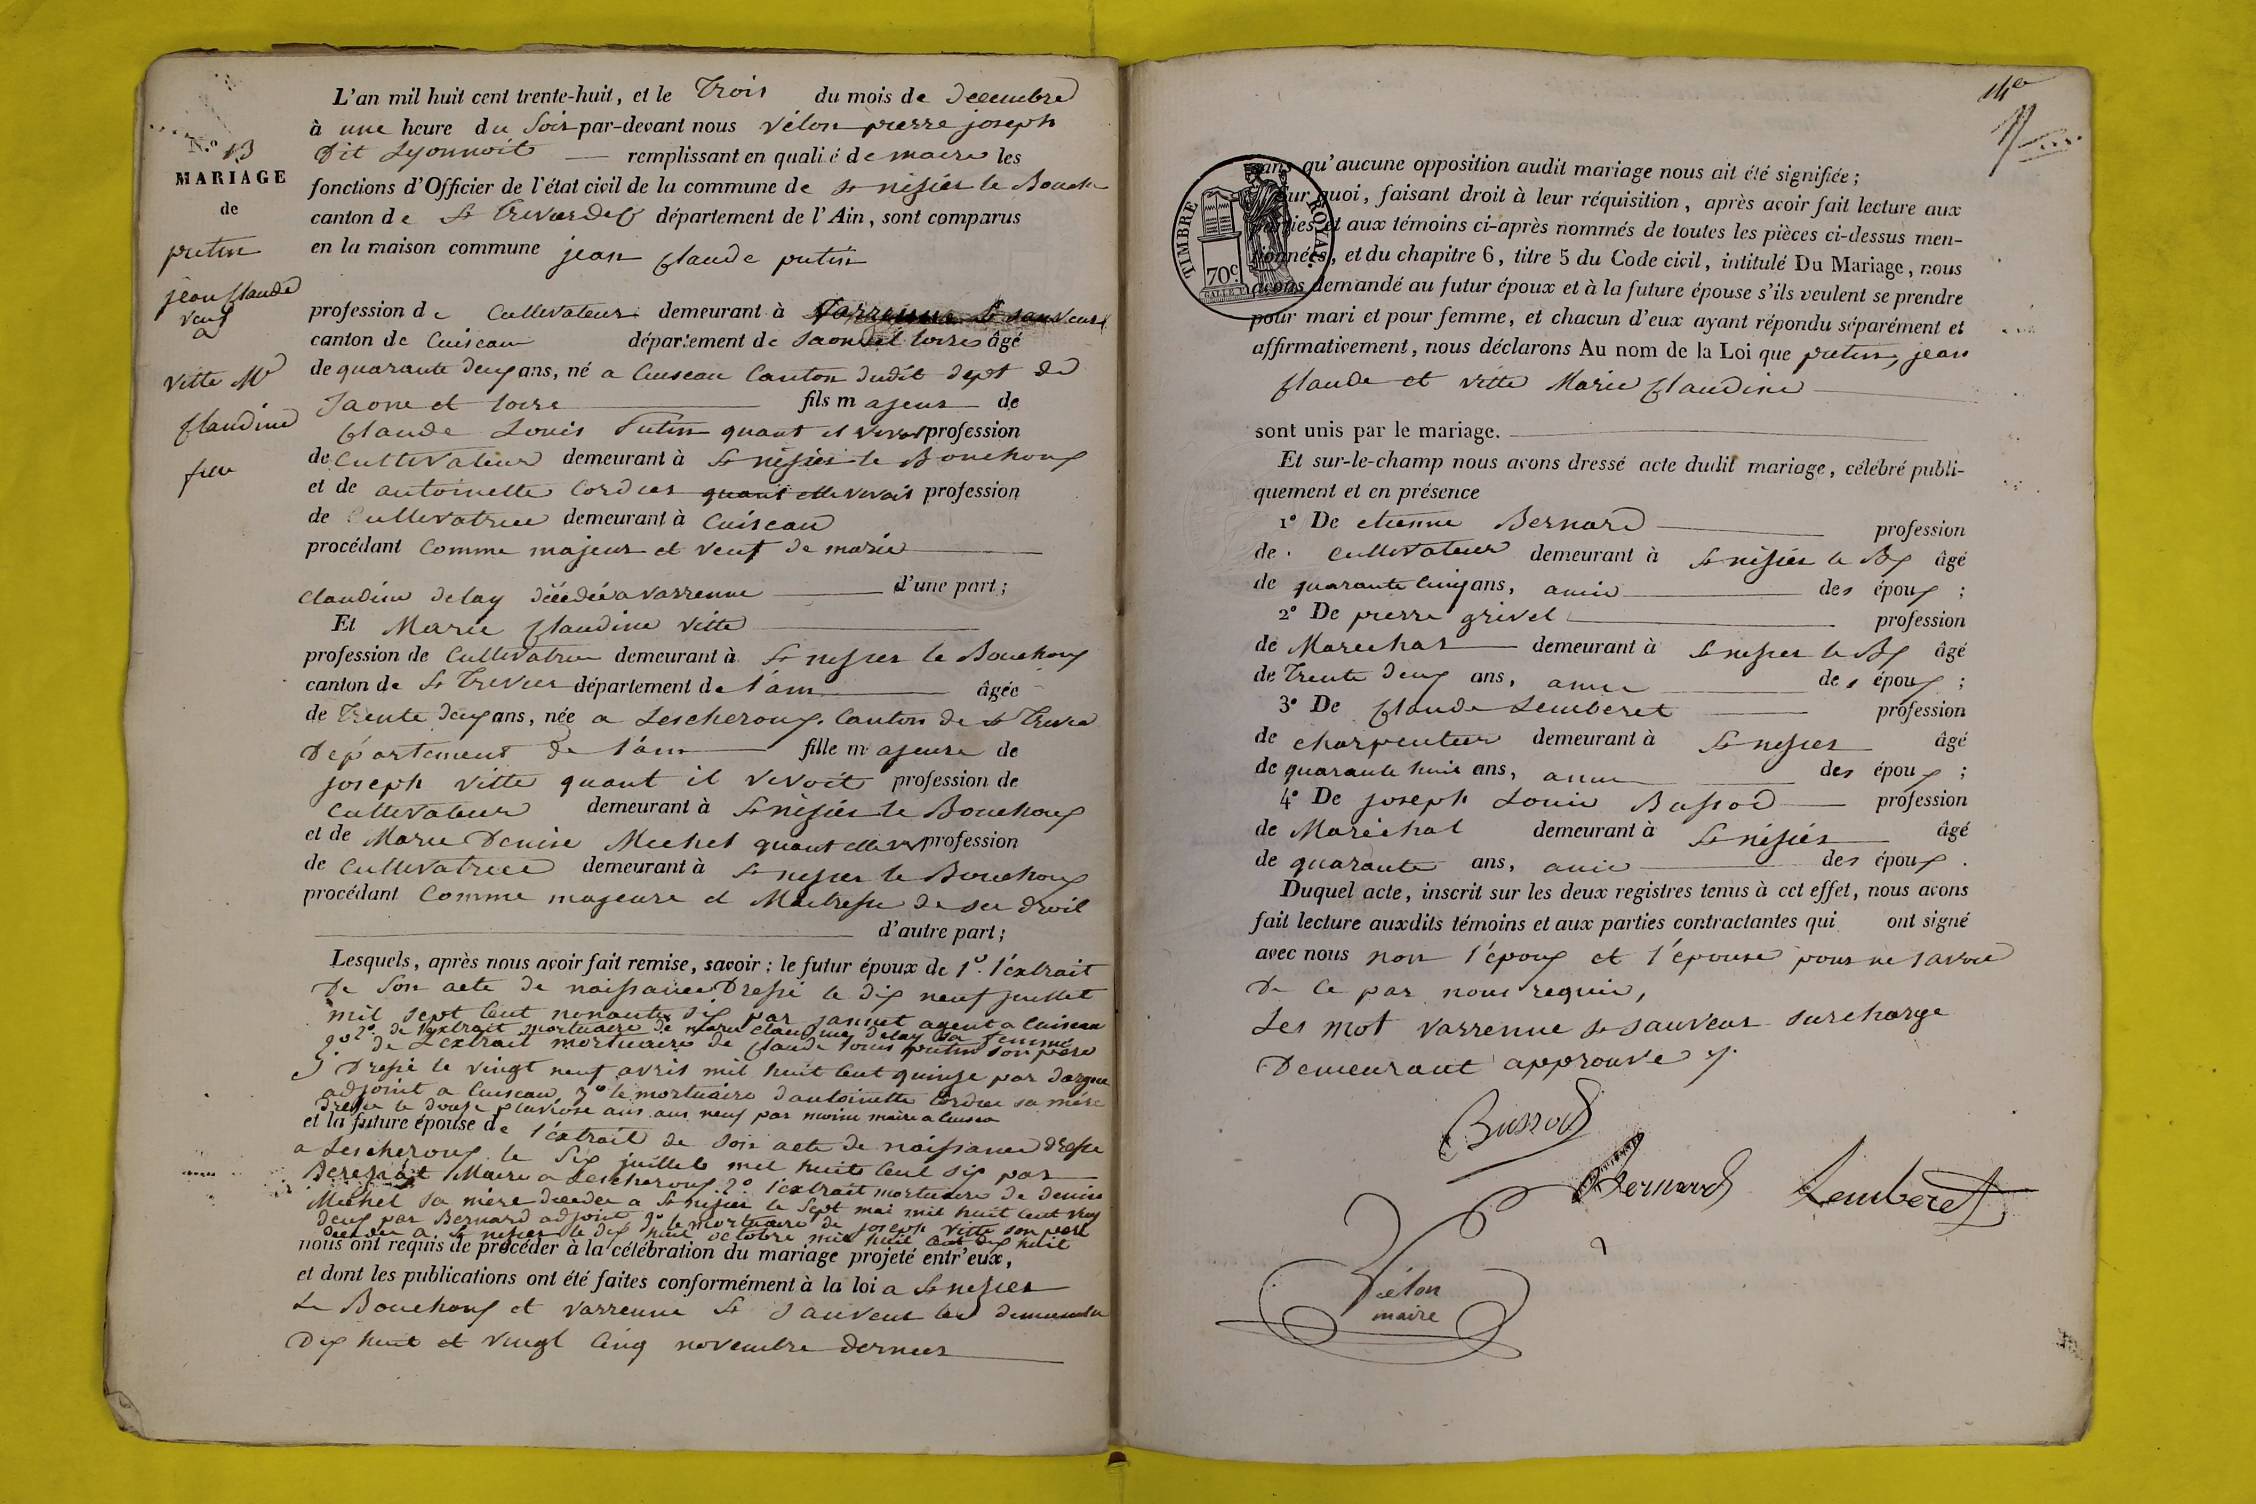 L'an mil huit cent trente-huit, et le Trois du mois de decembre
à une heure du Soir par-devant nous vélon pierre joseph
Dit Lyonnoit remplissant en qualité de maire les
fonctions d'Officier de l'état civil de la commune de St nisier le Bouch
canton de St Trivier de C département de l'Ain, sont comparus
en la maison commune jean Claude putin
N.° 13
MARIAGE
de
putin
jean Claude
veuf
a
vitte Mie
Claudine
fille
profession de Cultivateur demeurant à Varrenne St sauveur
canton de Cuiseau département de Saone et loire âgé
de quarante deux ans, né a Cuiseau Canton dudit dept de
Saone et loire fils majeur de
Claude Louis Putin quant il vivoit profession
de Cultivateur demeurant à St nisier le Bouchoux
et de antoinette Cordier quant elle vivoit profession
de Cultivatrice demeurant à Cuiseau
procédant Comme majeur et veuf de marie
Claudine delay décédée a varrenne d'une part;
Et Marie Claudine vitte
profession de Cultivatrice demeurant à St nisier le Bouchoux
canton de St Trivier département de l'ain âgée
de Trente deux ans, née a Lescheroux Canton de St Trivier
Département de l'ain fille majeure de
joseph vitte quant il vivoit profession de
Cultivateur demeurant à St nisier le Bouchoux
et de Marie Denise Michel quant elle viv profession
de Cultivatrice demeurant à St nisier le Bouchoux
procédant Comme majeure et Maitresse de ses droit
d'autre part;
Lesquels, après nous avoir fait remise, savoir : le futur époux de 1° l'extrait
De Son acte de naissance Dressé le dix neuf juillet
mil sept Cent nonante six par jannet agent a Cuiseau
2° de l'extrait mortuaire de marie Claudine delay sa femme
de L'extrait mortuaire de Claude Louis putin son père
Dressé le vingt neuf avril mil huit Cent quinze par
adjoint a Cuiseau 3° le mortuaire d'antoinette Cordier sa mère
Dressé le douze pluviose ans neuf par moine maire a Cuiseau
et la future épouse de l'éxtrait de son acte de naissance dressé
a Lescheroux le Six juillet mil huit Cent six par
Maire a Lescheroux 2° l'extrait mortuaire de denise
Michel sa mère décédée a St nisier le Sept mai mil huit Cent
deux par Bernard adjoint 3° le mortuaire de joseph vitte son père
décédé a St nisier le dix huit octobre mil huit Cent dix huit
nous ont requis de procéder à la célébration du mariage projeté entr'eux,
et dont les publications ont été faites conformément à la loi a St nisier
Le Bouchoux et varrenne St Sauveur les dimanche
Dix huit et vingt Cinq novembre dernier
14e
TIMBRE ROYAL
70c.
sans qu'aucune opposition audit mariage nous ait été signifiée;
Sur quoi, faisant droit à leur réquisition, après avoir fait lecture aux
parties et aux témoins ci-après nommés de toutes les pièces ci-dessus men-
tionnées, et du chapitre 6, titre 5 du Code civil, intitulé Du Mariage, nous
avons demandé au futur époux et à la future épouse s'ils veulent se prendre
pour mari et pour femme, et chacun d'eux ayant répondu séparément et
affirmativement, nous déclarons Au nom de la Loi que putin, jean
Claude et vitte Marie Claudine
sont unis par le mariage.
Et sur-le-champ nous avons dressé acte dudit mariage, célébré publi-
quement et en présence
1° De etienne Bernard profession
de Cultivateur demeurant à St nisier le Bx âgé
de quarante Cinq ans, amis des époux;
2° De pierre grivel profession
de Marechar demeurant à St nisier le Bx âgé
de Trente deux ans, amie des époux;
3° De Claude Lemberet profession
de charpentier demeurant à St nisier âgé
de quarante huit ans, amie des époux;
4° De joseph Louis Bussod profession
de Maréchal demeurant à St nisier âgé
de quarante ans, amie des époux.
Duquel acte, inscrit sur les deux registres tenus à cet effet, nous avons
fait lecture auxdits témoins et aux parties contractantes qui ont signé
avec nous non l'époux et l'épouse pour ne savoir
De Ce par nous requis,
Les mot varrenne St sauveur surcharge
Demeurant approuvé
Bussod
Bernard
Lemberet
Vélon
maire